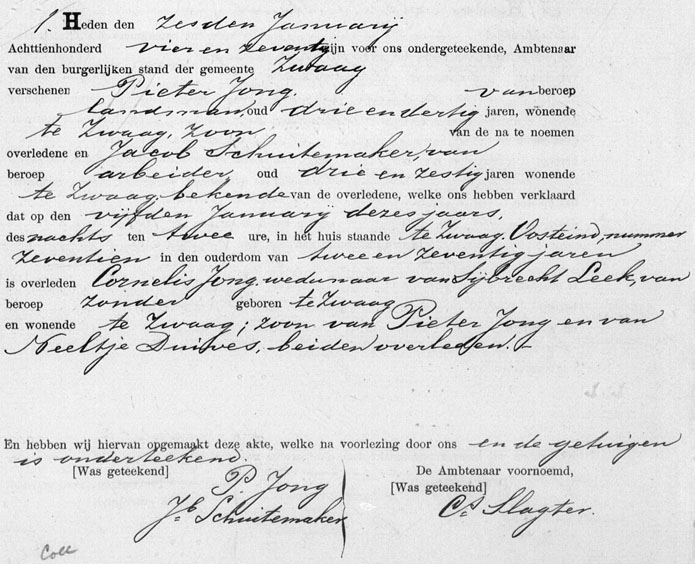 1. Heden den zesden Januarij
Achttienhonderd vier en zeventig zijn voor ons ondergeteekende, Ambtenaar
van den burgerlijken stand der gemeente Zwaag
verschenen Pieter Jong. van beroep
landman, oud drie en dertig jaren, wonende
te Zwaag, zoon van de na te noemen
overledene en Jacob Schuitemaker, van
beroep arbeider, oud drie en zestig jaren wonende
te Zwaag, bekende van de overledene, welke ons hebben verklaard
dat op den vijfden Januarij dezes jaars,
des nachts ten twee ure, in het huis staande te Zwaag, Oosteind, nummer
zeventien in den ouderdom van twee en zeventig jaren
is overleden Cornelis Jong, wedunaar van Sijbrecht Leek, van
beroep zonder geboren te Zwaag
en wonende te Zwaag; zoon van Pieter Jong en van
Neeltje Duives, beiden overleden.
En hebben wij hiervan opgemaakt deze akte, welke na voorlezing door ons en de getuigen
is onderteekend.
[Was geteekend] De Ambtenaar voornoemd,
P. Jong [Was geteekend]
Jb Schuitemaker Cs Slagter.
Coll